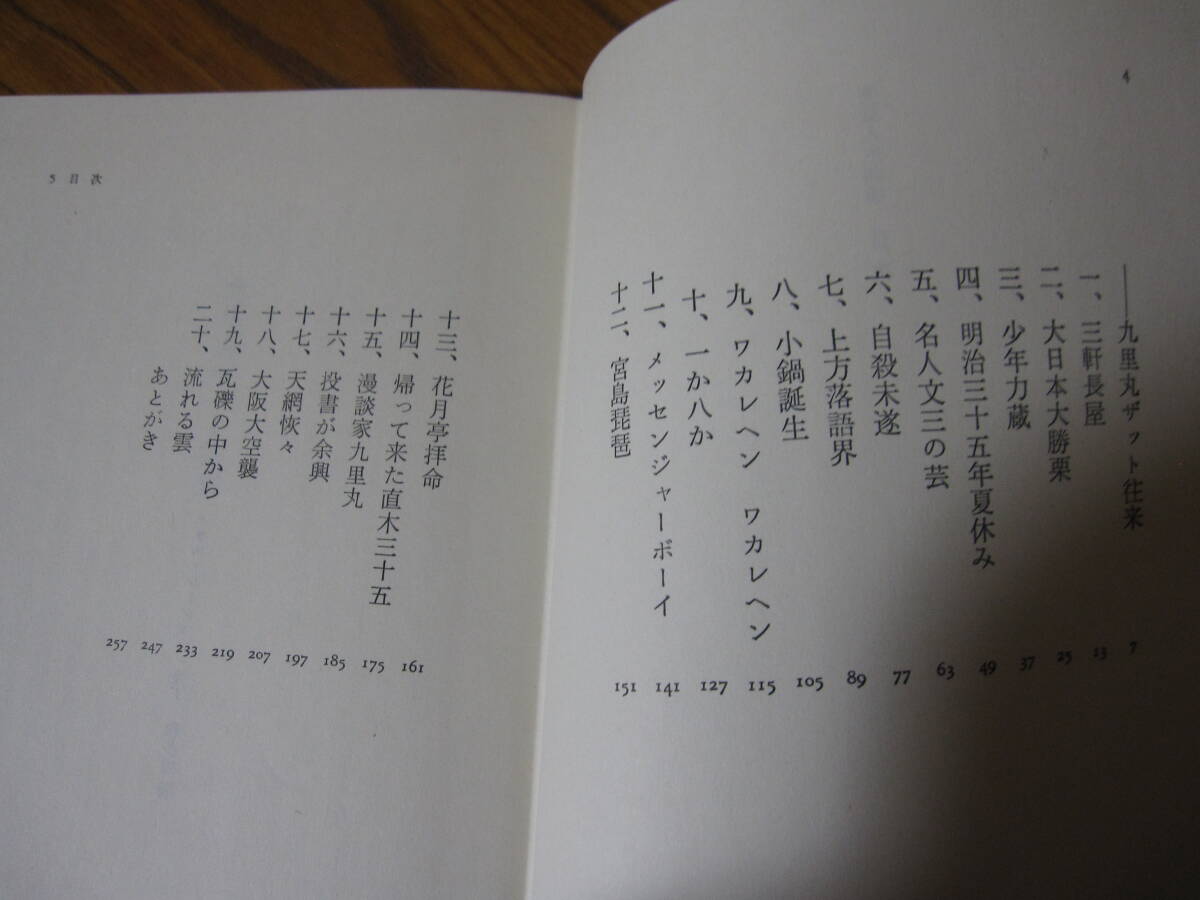 4
――九里丸ザット往来 7
一、三軒長屋 13
二、大日本大勝栗 25
三、少年力蔵 37
四、明治三十五年夏休み 49
五、名人文三の芸 63
六、自殺未遂 77
七、上方落語界 89
八、小鍋誕生 105
九、ワカレヘン　ワカレヘン 115
十、一か八か 127
十一、メッセンジャーボーイ 141
十二、宮島琵琶 151
5 目次
十三、花月亭拝命 161
十四、帰って来た直木三十五 175
十五、漫談家九里丸 185
十六、投書が余興 197
十七、天網恢々 207
十八、大阪大空襲 219
十九、瓦礫の中から 233
二十、流れる雲 247
あとがき 257